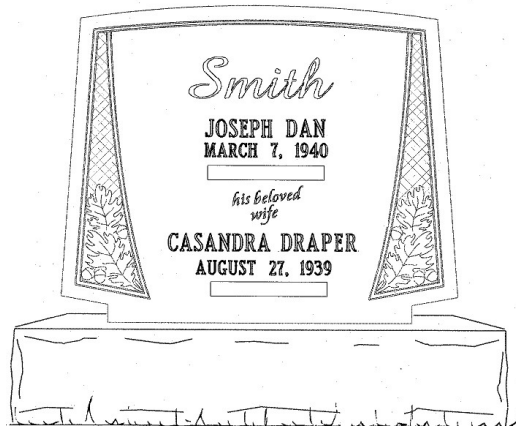 Smith
JOSEPH DAN
MARCH 7, 1940
his beloved
wife
CASANDRA DRAPER
AUGUST 27, 1939